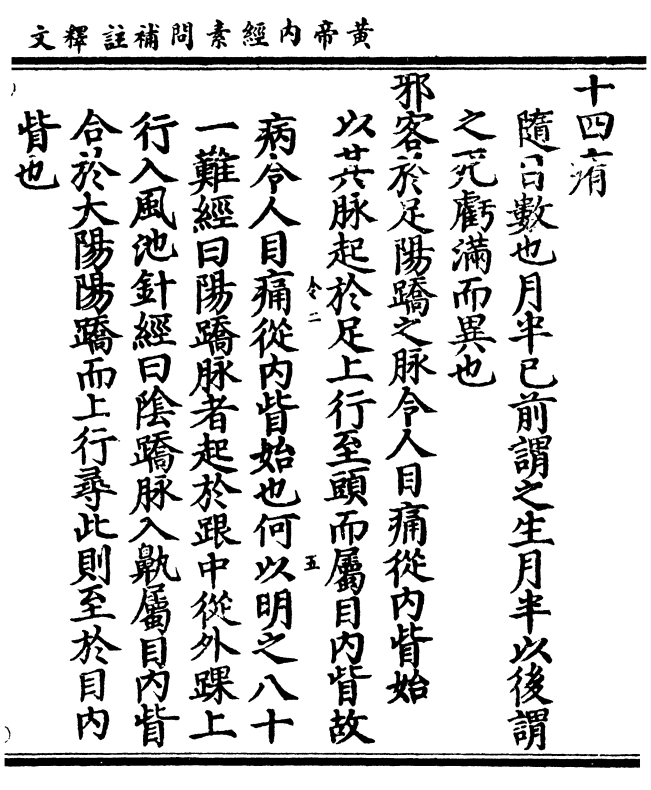 黃帝內經素問補註釋文
十四痏
隨日數也月半已前謂之生月半以後謂
之死虧滿而異也
邪客於足陽蹻之脉令人目痛從内眥始
以其脉起於足上行至頭而屬目内眥故
病令人目痛從内眥始也何以明之八十
一難經曰陽蹻脉者起於跟中從外踝上
行入風池針經曰陰蹻脉入鼽屬目内眥
合於大陽陽蹻而上行尋此則至於目内
眥也
令二
五